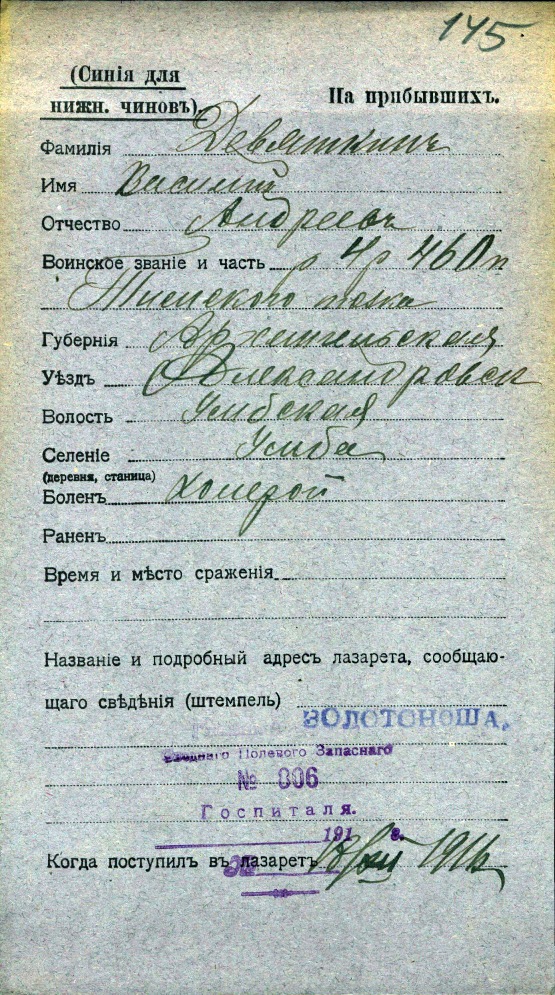 145
(Синія для
нижн. чиновъ)
На прибывшихъ.
Фамилія Девяткинъ
Имя Василій
Отчество Андреевъ
Воинское званіе и часть р 4р 460 п
Тимскаго полка
Губернія Архангельская
Уѣздъ Александровск
Волость Умбская
Селеніе Умба
(деревня, станица)
Боленъ Холерой
Раненъ
Время и мѣсто сраженія
Названіе и подробный адресъ лазарета, сообщаю-
щаго свѣдѣнія (штемпель)
ЗОЛОТОНОША.
Полевого Запаснаго
№ 806
Госпиталя.
191 г.
Когда поступилъ въ лазаретъ 1916